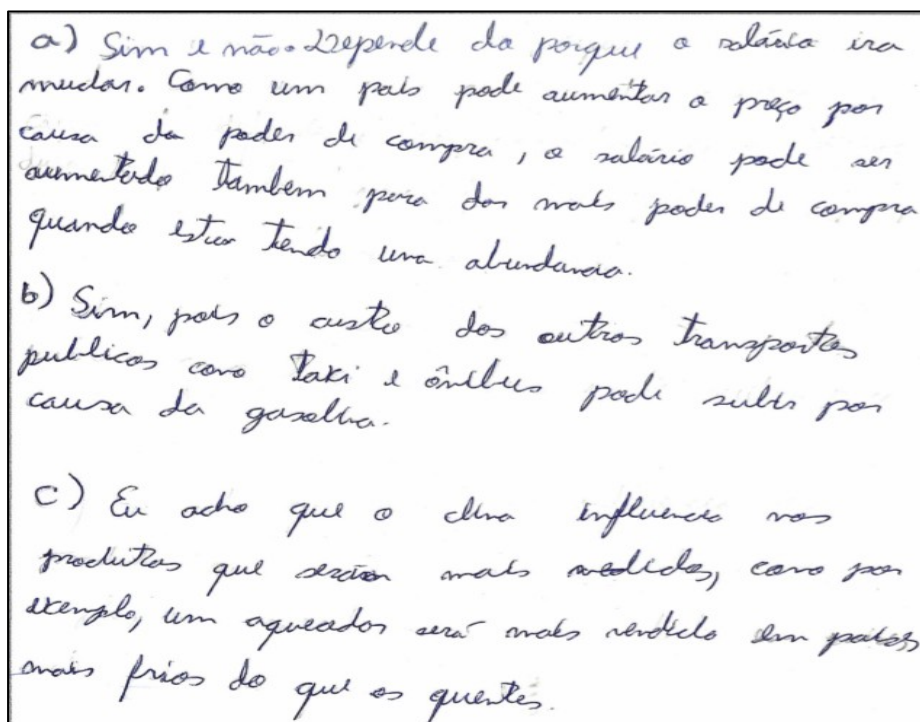 a) Sim e não. Depende do porque o salário ira
mudar. Como um pais pode aumentar o preço por
causa do poder de compra, o salário pode ser
aumentado tambem para dar mais poder de compra
quando estar tendo uma abundancia.
b) Sim, pois o custo dos outros transportes
publicos como taxi e ônibus pode subir por
causa da gasolina.
c) Eu acho que o clima influencia nos
produtos que serão mais vedidos, como por
exemplo, um aquecedor será mais vendido em países
mais frios do que os quentes.